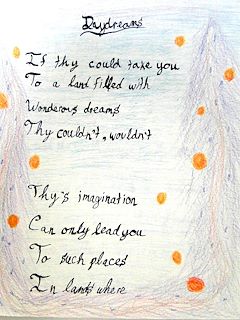 Daydreams
If thy could take you
To a land filled with
Wonderous dreams
Thy couldn't, wouldn't
Thy's imagination
Can only lead you
To such places
In lands where